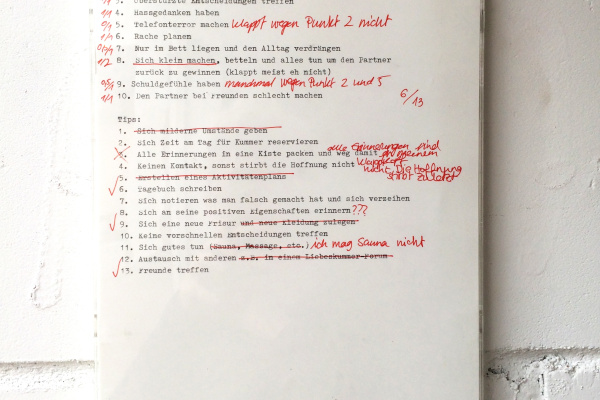 1/1 3. Überstürzte Entscheidungen treffen
1/1 4. Hassgedanken haben
0/1 5. Telefonterror machen klappt wegen Punkt 2 nicht
1/1 6. Rache planen
7. Nur im Bett liegen und den Alltag verdrängen
1/2 8. Sich klein machen, betteln und alles tun um den Partner
zurück zu gewinnen (klappt meist eh nicht)
0,5/1 9. Schuldgefühle haben manchmal wegen Punkt 2 und 5
1/1 10. Den Partner bei Freunden schlecht machen
6/13
Tips:
1. Sich mildernde Umstände geben
2. Sich Zeit am Tag für Kummer reservieren
3. Alle Erinnerungen in eine Kiste packen und weg damit alle Erinnerungen sind in meinem
4. Keinen Kontakt, sonst stirbt die Hoffnung nicht
nicht, Die Hoffnung
stirbt zuletzt
5. Erstellen eines Aktivitätenplans
6. Tagebuch schreiben
7. Sich notieren was man falsch gemacht hat und sich verzeihen
8. Sich an seine positiven Eigenschaften erinnern ???
9. Sich eine neue Frisur und neue Kleidung zulegen
10. Keine vorschnellen Entscheidungen treffen
11. Sich gutes tun (Sauna, Massage, etc.) ich mag Sauna nicht
12. Austausch mit anderen z.B. in einem Liebeskummer-Forum
13. Freunde treffen